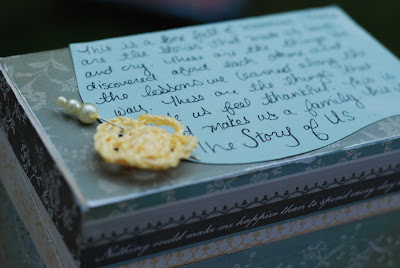 This is a box full of
are the stories that made us
and cry. These are the things we
discovered about each other and
the lessons we learned along the
way. These are the things that
us feel thankful. This is
makes us a family this is
The Story of Us
Nothing could make me happier than to spend every day